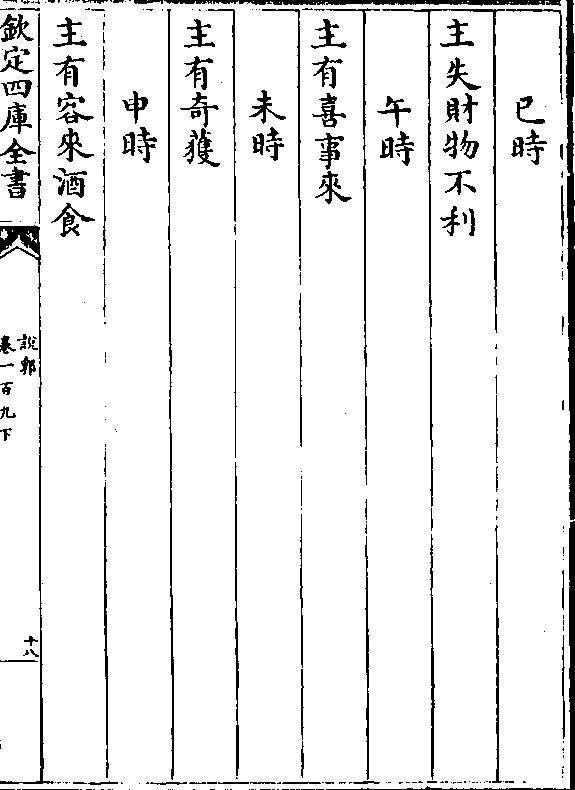 巳時
主失財物不利
午時
主有喜事來
未時
主有奇獲
申時
主有客來酒食
欽定四庫全書
說郛
卷一百九下
十八